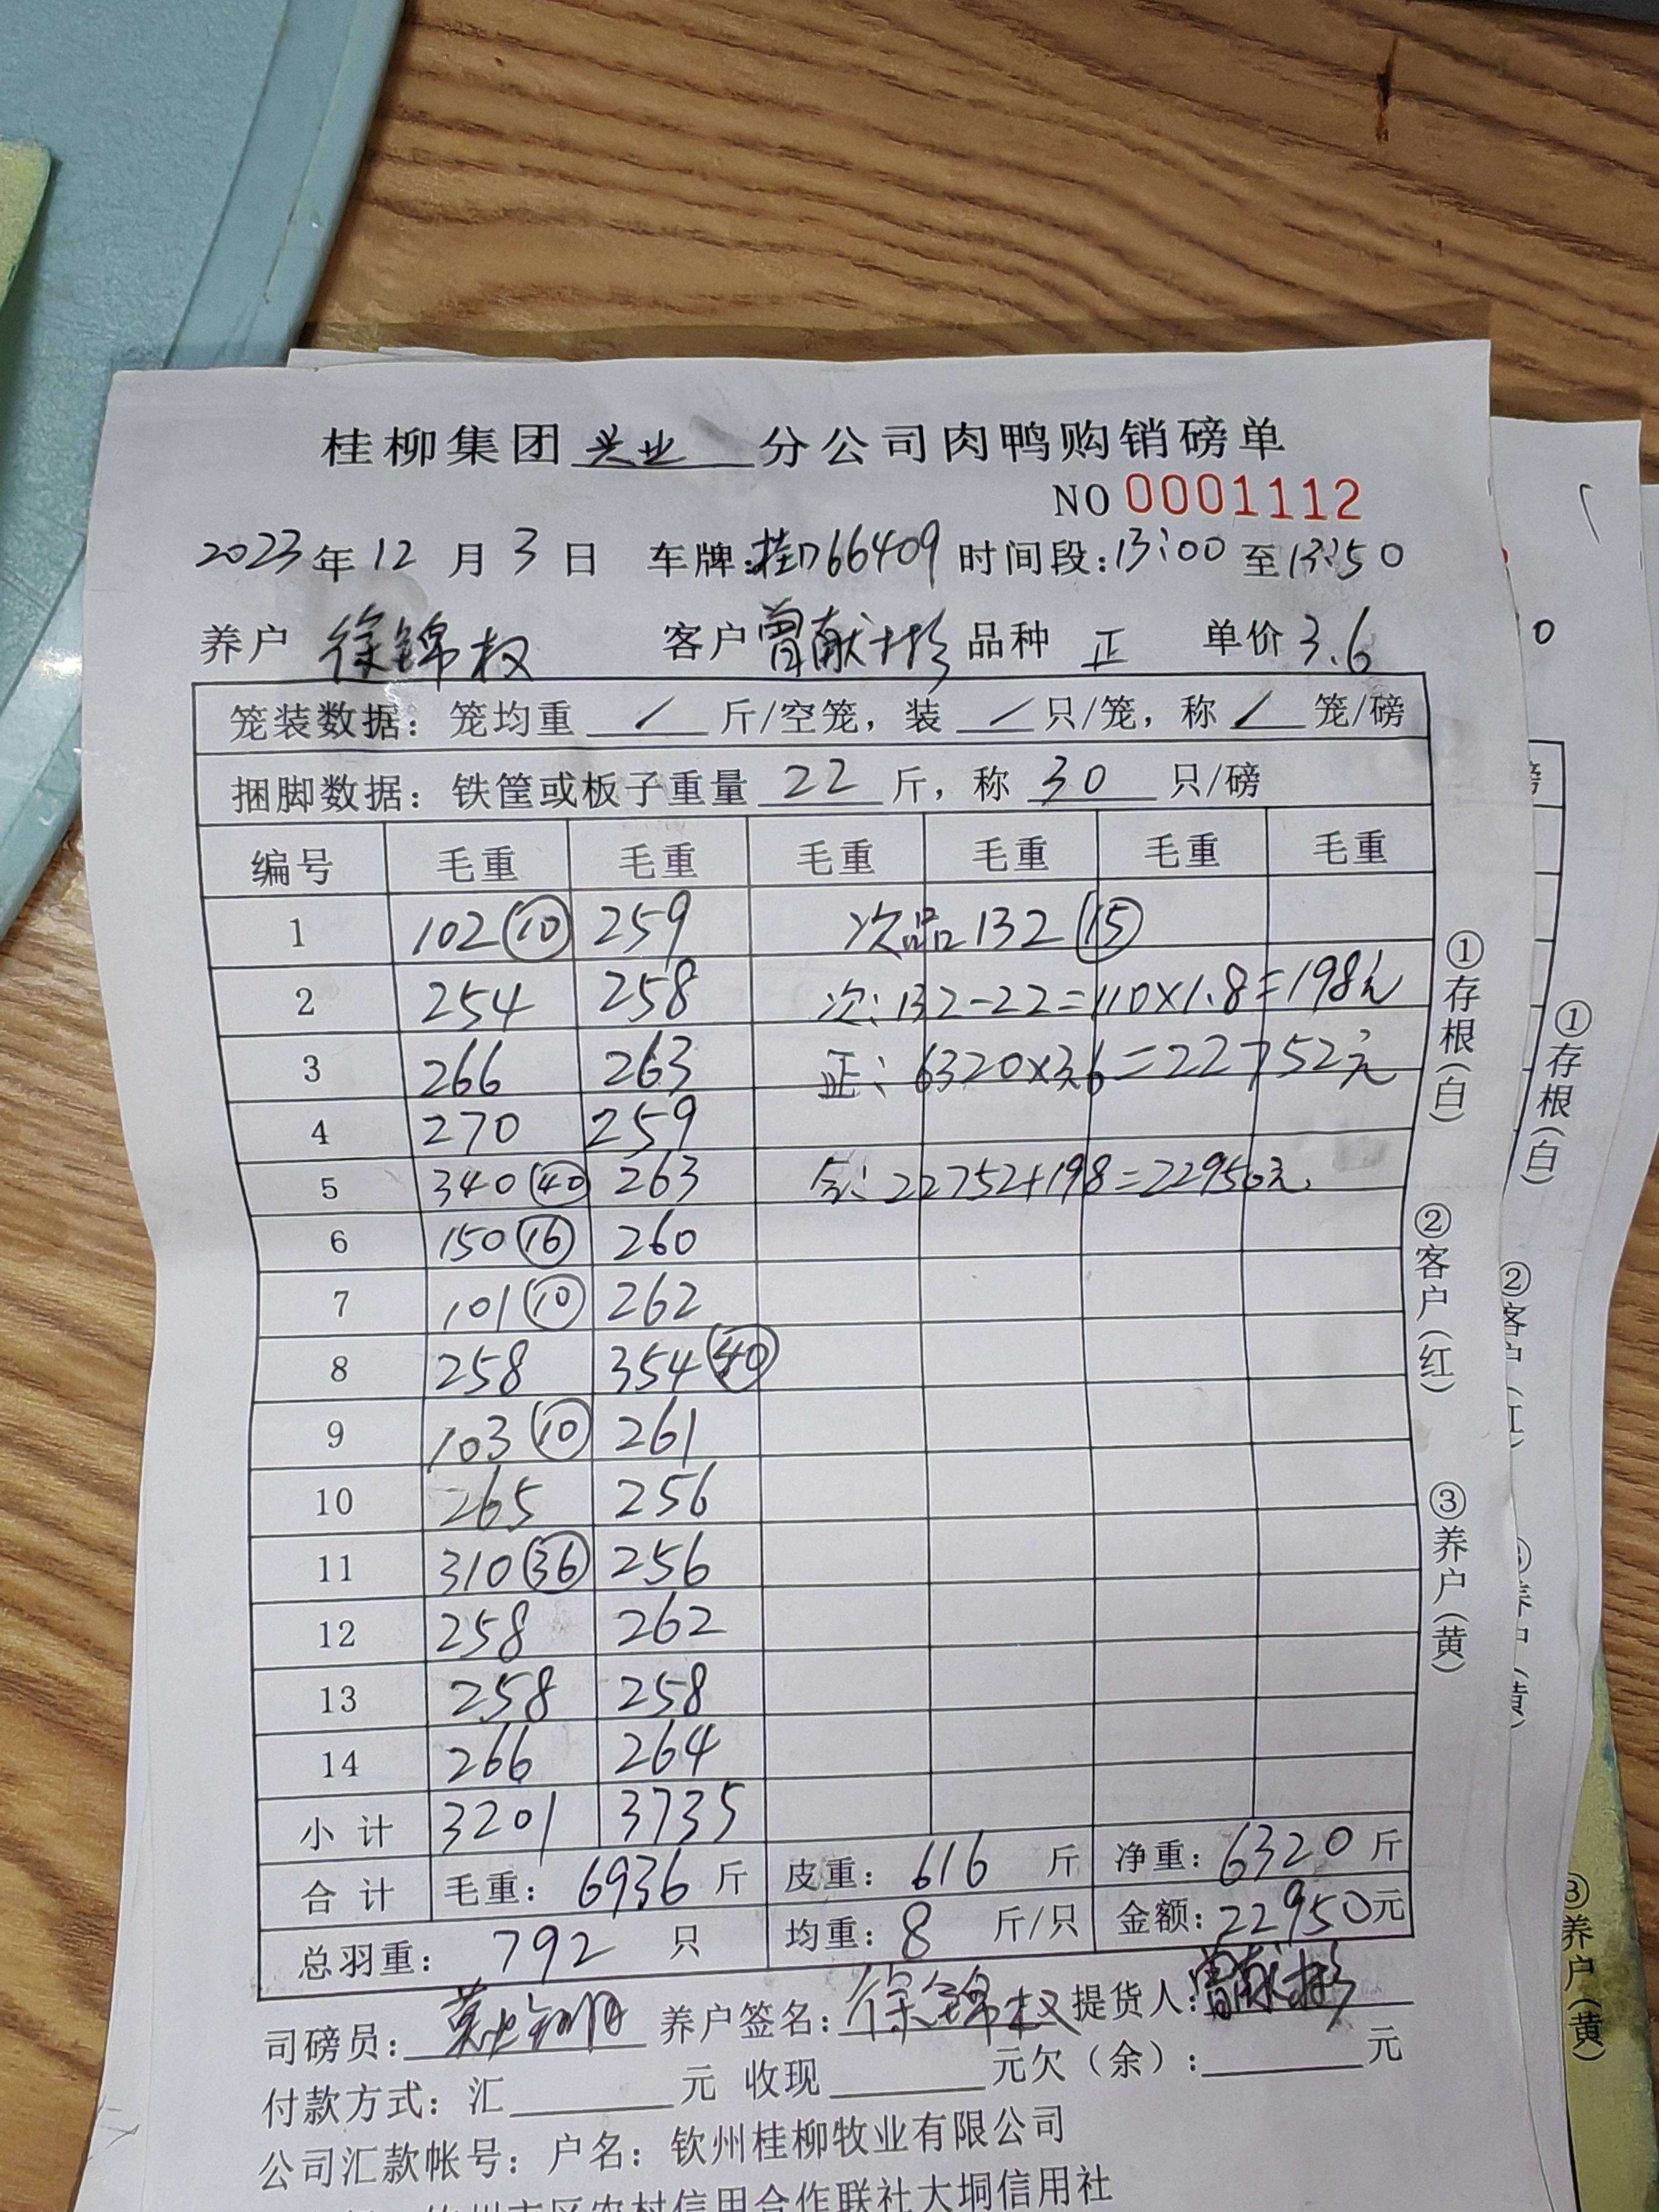 桂柳集团兴业分公司肉鸭购销磅单
NO 0001112
2023年12月3日 车牌:桂D66409 时间段:13:00至13:50
养户 徐锦权 客户 曾献彬 品种 正 单价 3.6
笼装数据：笼均重 / 斤/空笼，装 / 只/笼，称 / 笼/磅
捆脚数据：铁筐或板子重量 22 斤，称 30 只/磅
编号 毛重 毛重 毛重 毛重 毛重 毛重
1 102 ⑩ 259 次品 132 ⑮
2 254 258 次: 132-22=110×1.8=198元
3 266 263 正: 6320×3.6=22752元
4 270 259
5 340 ㊵ 263 合: 22752+198=22950元
6 150 ⑯ 260
7 101 ⑩ 262
8 258 354 ㊵
9 103 ⑩ 261
10 265 256
11 310 ㊱ 256
12 258 262
13 258 258
14 266 264
小计 3201 3735
合计 毛重：6936斤 皮重：616斤 净重：6320斤
总羽重：792只 均重：8斤/只 金额：22950元
司磅员： 养户签名：徐锦权 提货人：曾献彬
付款方式：汇 元 收现 元欠（余）： 元
公司汇款帐号：户名：钦州桂柳牧业有限公司
农村信用合作联社大垌信用社
①存根(白)
②客户(红)
③养户(黄)
0
磅
①存根(白)
②客户
③养户(黄)